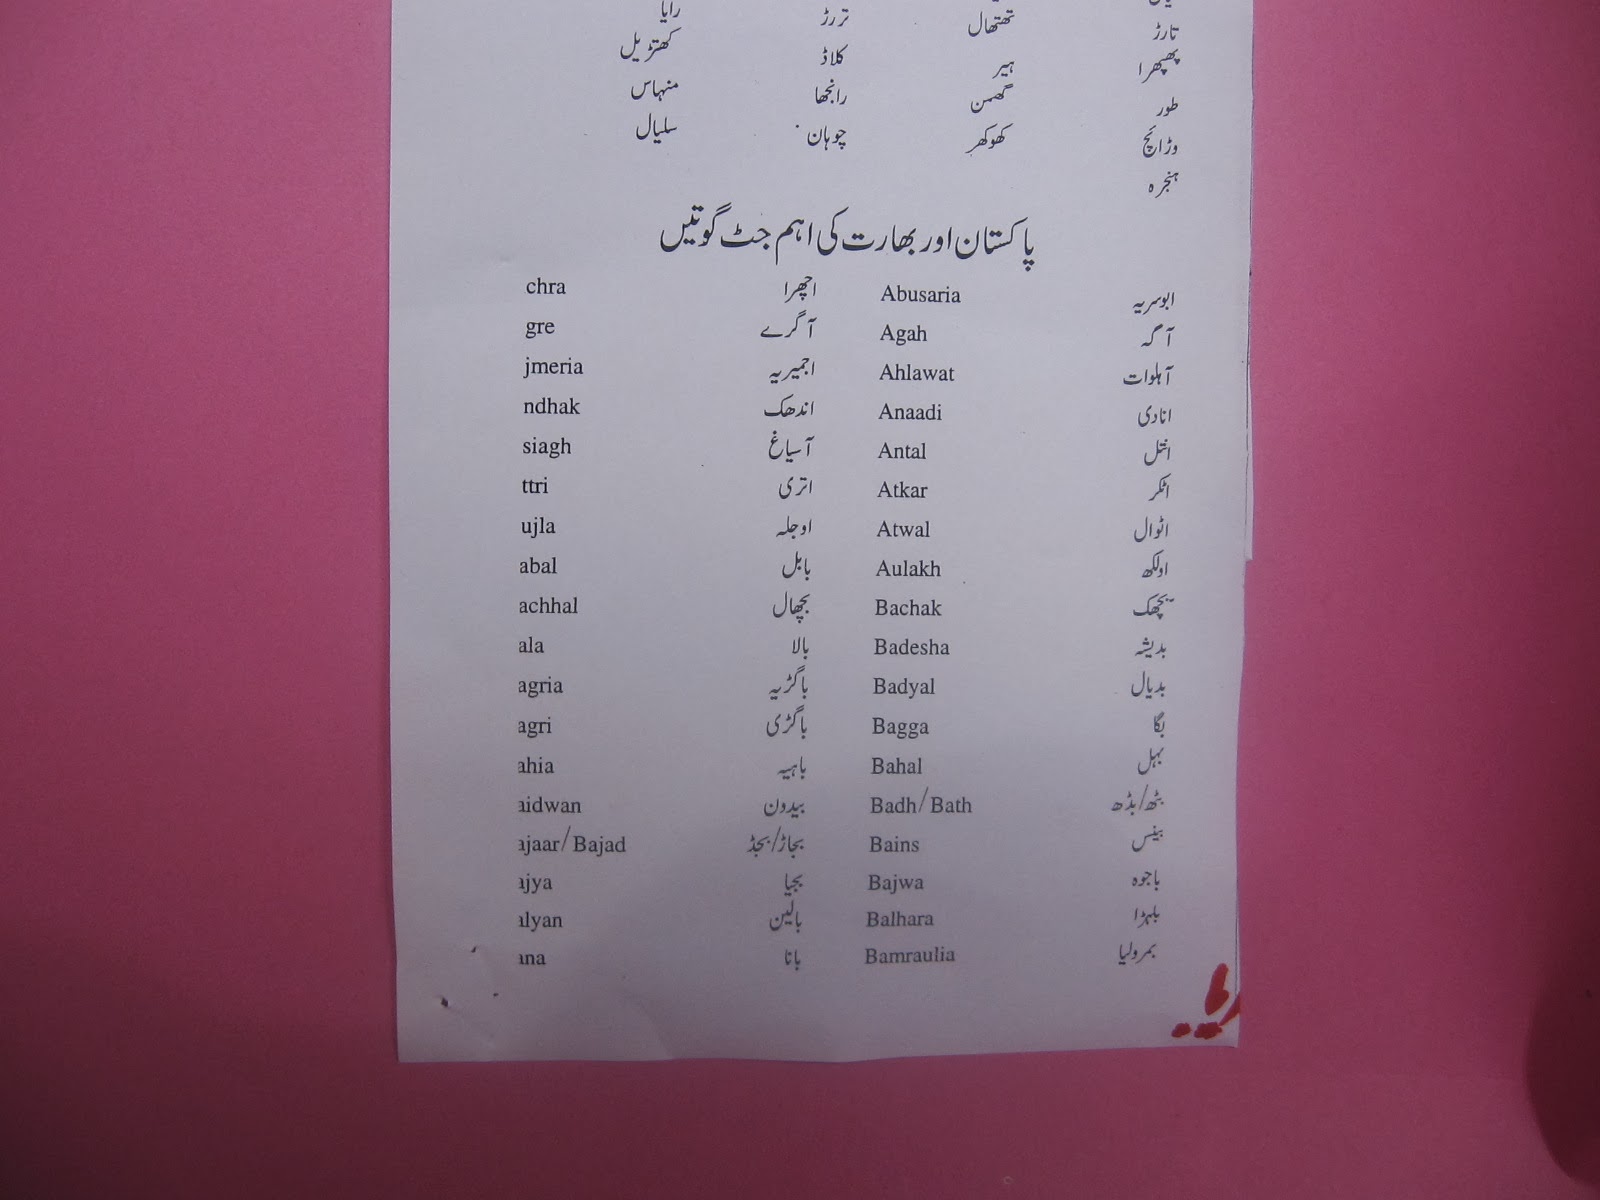 تارڑ تھتھال تررڑ رایا
پھپھرا ہیر کلاڈ کھتڑیل
طور گھمن رانجھا منہاس
وڑائچ کھوکھر چوہان سلیال
ہنجرہ
پاکستان اور بھارت کی اہم جٹ گوتیں
ابوسریہ Abusaria اچھرا chra
آگہ Agah آگرے gre
آہلوات Ahlawat اجمیریہ jmeria
انادی Anaadi اندھک ndhak
انتل Antal آسیاغ siagh
اٹکر Atkar اتری ttri
اٹوال Atwal اوجلہ ujla
اولکھ Aulakh بابل abal
بچھک Bachak بچھال achhal
بدیشہ Badesha بالا ala
بدیال Badyal باگڑیہ agria
بگا Bagga باگڑی agri
بہل Bahal باہیہ ahia
بٹھ/بڈھ Badh/Bath بیدون aidwan
بینس Bains بجاڑ/بجڈ ajaar/Bajad
باجوہ Bajwa بجیا ajya
بلہڑا Balhara بالین alyan
بمرولیا Bamraulia بانا ana